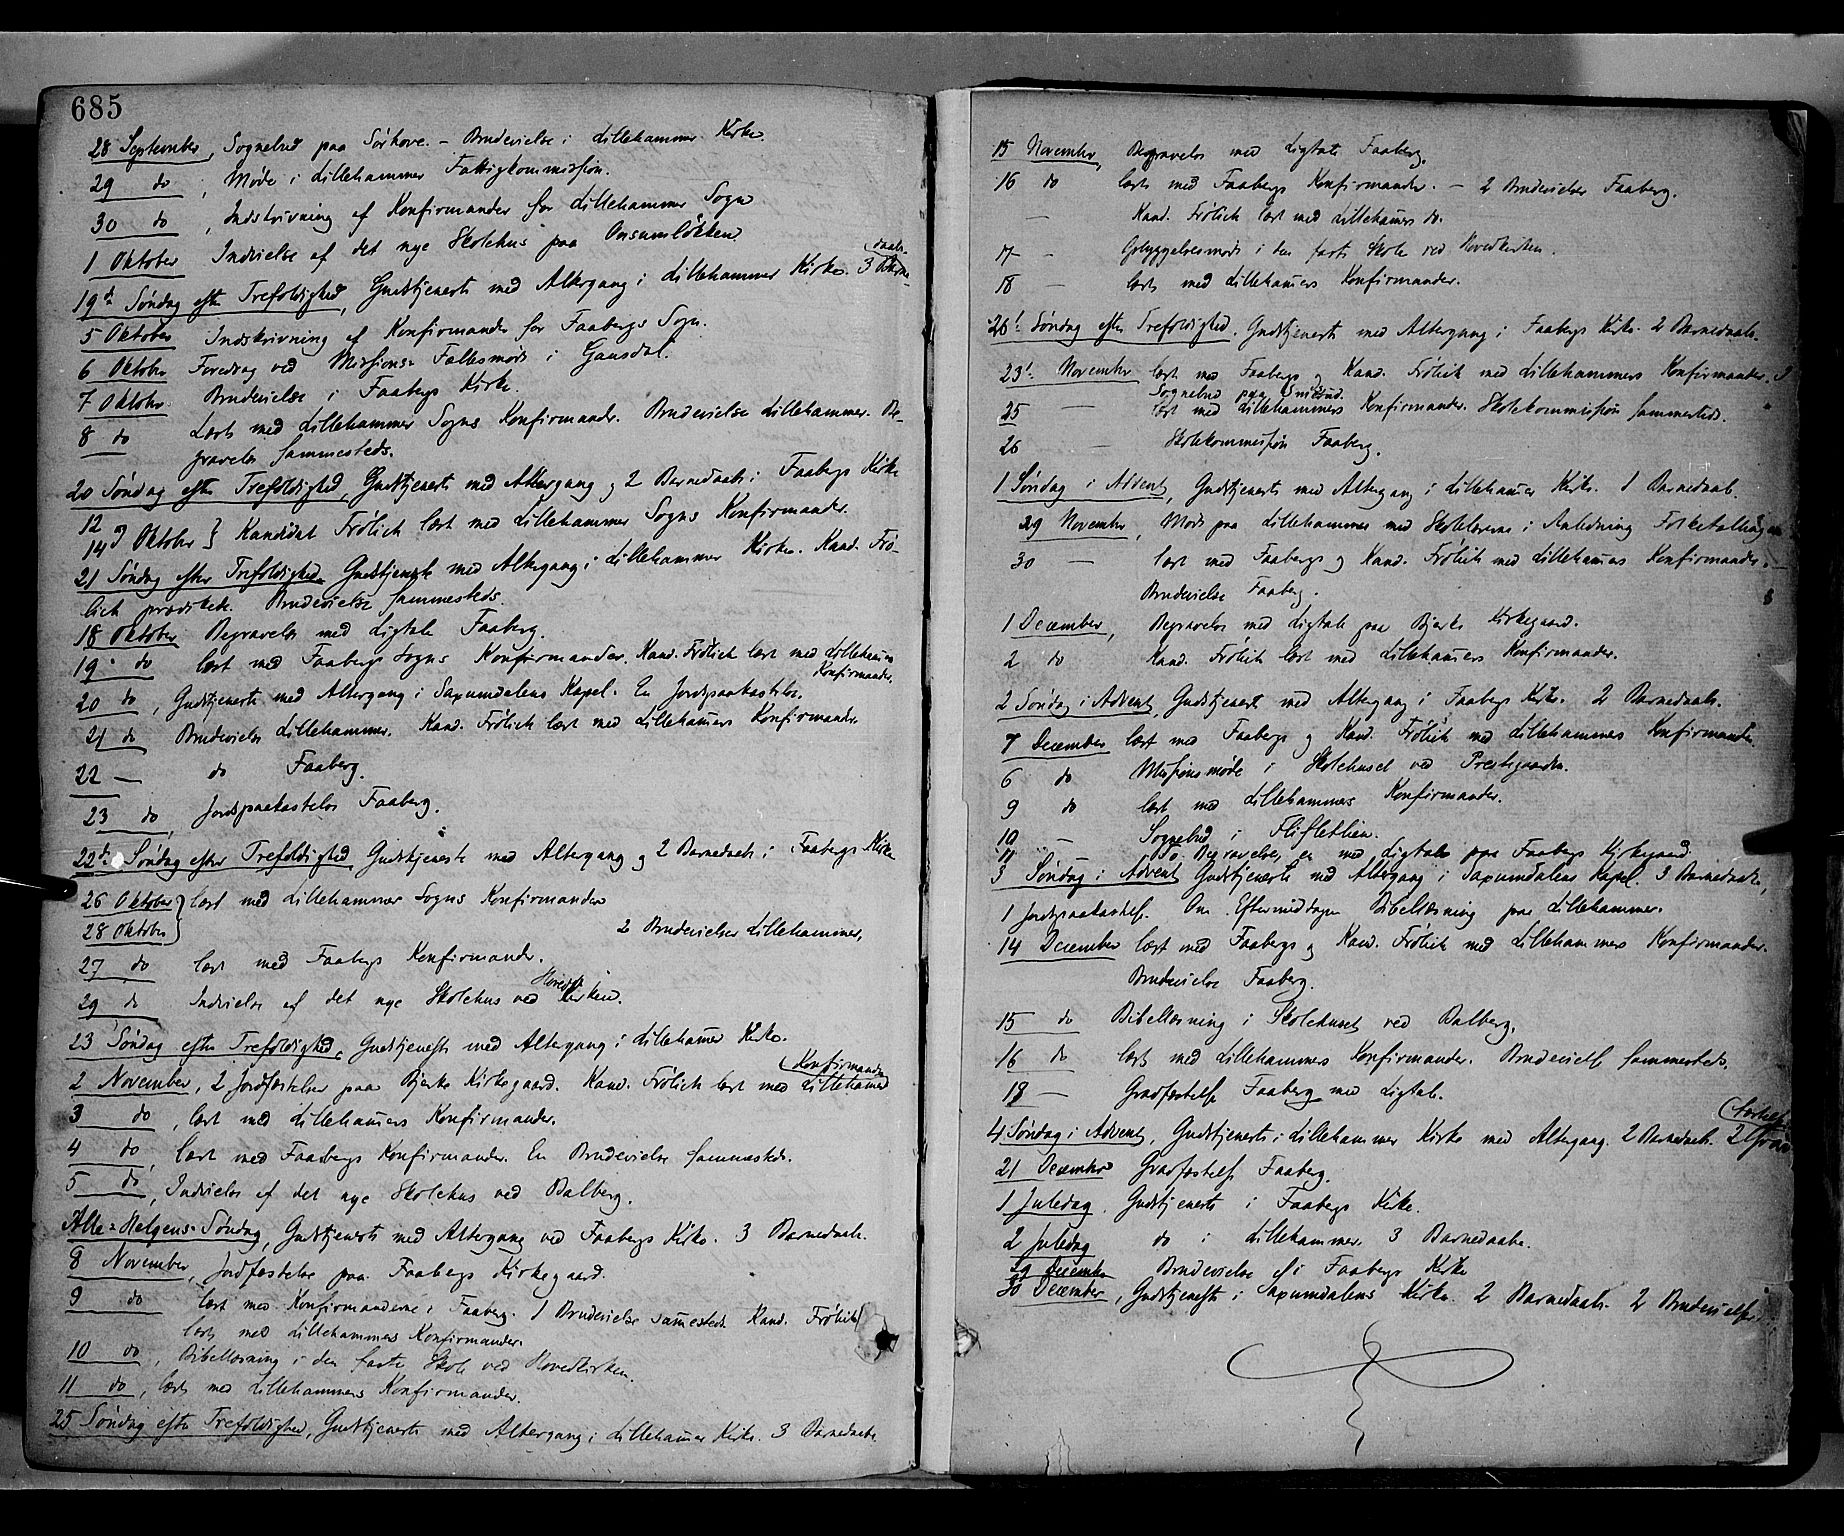 685
28 September, Sognebud paa Sørhove. – Brudevielse i Lillehammer Kirke.
29 do, Møde i Lillehammer Fattigkommission.
30 do, Indskrivning af Konfirmander for Lillehammer Sogn
1 Oktober Indvielse af det nye Skolehus paa
19de Søndag efter Trefoldighed, Gudstjeneste med Altergang i Lillehammer Kirke. 3 Barne-
daab.
5 Oktober Indskrivning af Konfirmander for Faabergs Sogn.
6 Oktober Foredrag ved Missions-Fællesmøde i Gausdal.
7 Oktober Brudevielse i Faabergs Kirke.
8 do Læst med Lillehammer Sogns Konfirmander. Brudevielse Lillehammer. Be-
gravelse sammesteds.
20 Søndag efter Trefoldighed, Gudstjeneste med Altergang og 2 Barnedaab i Faabergs Kirke
12 og 14 Oktober } Kandidat Frölich læst med Lillehammer Sogns Konfirmander.
21 Søndag efter Trefoldighed, Gudstjeneste med Altergang i Lillehammer Kirke. Kand. Frö-
lich prædikede. Brudevielse sammesteds.
18 Oktober Begravelse med Ligtale Faaberg.
19 do læst med Faabergs Sogns Konfirmander. Kand. Frölich læst med Lillehamers
Konfirmander.
20 do, Gudstjeneste med Altergang i Saxumdalens Kapel. En Jordpaakastelse.
21 do Brudevielse Lillehammer. Kand. Frölich læst med Lillehamers Konfirmander
22 — do Faaberg.
23 do, Jordpaakastelse Faaberg.
22de Søndag efter Trefoldighed Gudstjeneste med Altergang og 2 Barnedaab i Faabergs Kirke
26 Oktober } læst med Lillehammer Sogns Konfirmander
28 Oktober } 2 Brudevielser Lillehammer,
27 do læst med Faabergs Konfirmander.
29 do Indvielse af det nye Skolehus ved Hovedkirken.
23 Søndag efter Trefoldighed, Gudstjeneste med Altergang i Lillehamer Kirke.
Konfirmander
2 November, 2 Jordfæstelser paa Bjerke Kirkegaard. Kand. Frölich læst med Lillehamer
3 do, læst med Lillehamers Konfirmander.
4 do, læst med Faabergs Konfirmander. En Brudevielse sammesteds.
5 do, Indvielse af det nye Skolehus ved Balberg.
Alle-Helgens-Søndag, Gudstjeneste med Altergang ved Faabergs Kirke. 3 Barnedaab.
8 November, Jordfæstelse paa Faabergs Kirkegaard.
9 do læst med Konfirmanderne i Faaberg. 1 Brudevielse samesteds Kand. Frölich
læst med Lillehammers Konfirmander.
10 do, Bibellæsning i den faste Skole ved Hovedkirken.
11 do, læst med Lillehammers Konfirmander.
25 Søndag efter Trefoldighed, Gudstjeneste med Altergang i Lillehamer Kirke. 3 Barnedaab.
15 November, Begravelse med Ligtale Faaberg.
16 do læst med Faabergs Konfirmander. – 2 Brudevielser Faaberg.
— Kand. Frölich læst med Lillehamers do.
17 – Opbyggelsesmøde i den faste Skole ved Hovedkirken.
18 — læst med Lillehamers Konfirmander.
26de Søndag efter Trefoldighed. Gudstjeneste med Altergang i Faabergs Kirke. 2 Barnedaab.
23de November læst med Faabergs og Kand. Frölich med Lillehammers Konfirmander.
Sognebud paa
25 — læst med Lillehammers Konfirmander. Skolekommission sammesteds.
26 — Skolekommission Faaberg.
1 Søndag i Advent, Gudstjeneste med Altergang i Lillehamer Kirke. 1 Barnedaab.
29 November, Møde paa Lillehammer med Skolelærerne i Anledning Folketællingen
30 — læst med Faabergs og Kand. Frölich med Lillehamers Konfirmander.
Brudevielse Faaberg.
1 December, Begravelse med Ligtale paa Bjerke Kirkegaard.
2 do Kand. Frölich læst med Lillehamers Konfirmander.
2 Søndag i Advent, Gudstjeneste med Altergang i Faabergs Kirke. 2 Barnedaab.
7 December læst med Faabergs og Kand. Frölich med Lillehammers Konfirmander.
6 do Missionsmøde i Skolehuset ved Prestegaarden.
9 do læst med Lillehammers Konfirmander.
10 — Sognebud i Flifletlien.
11 do. Begravelse, en med Ligtale paa Faabergs Kirkegaard.
3 Søndag i Advent Gudstjeneste med Altergang i Saxumdalens Kapel. 3 Barnedaab,
1 Jordpaakastelse. Om Eftermiddagen Bibellæsning paa Lillehammer.
14 December læst med Faabergs og Kand. Frölich med Lillehammers Konfirmander.
Brudevielse Faaberg.
15 do Bibellæsning i Skolehuset ved Balberg.
16 do læst med Lillehammers Konfirmander. Brudevielse sammesteds.
18 — Gravfæstelse Faaberg med Ligtale.
fæstelse
4 Søndag i Advent, Gudstjeneste i Lillehammer Kirke med Altergang. 2 Barnedaab. 2 Grav-
21 December Gravfæstelse Faaberg.
1 Juledag, Gudstjeneste i Faabergs Kirke.
2 Juledag do i Lillehammer 3 Barnedaabe.
29 December Brudevielse i Faabergs Kirke
30 December, Gudstjeneste i Saxumdalens Kirke. 2 Barnedaab. 2 Brudevielser